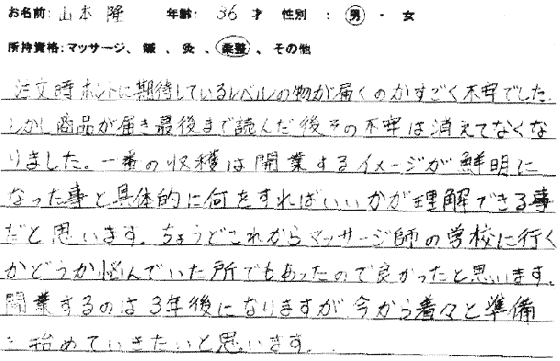 お名前: 山本 隆 年齢: 36 才 性別 : 男 ・ 女
所持資格:マッサージ、鍼 、灸 、柔整 、その他
注文時ホントに期待しているレベルの物が届くのかすごく不安でした.
しかし商品が届き最後まで読んだ後その不安は消えてなくな
りました。一番の収穫は開業するイメージが鮮明に
なった事と具体的に何をすればいいかが理解できる事
だと思います. ちょうどこれからマッサージ師の学校に行く
かどうか悩んでいた所でもあったので良かったと思います.
開業するのは3年後になりますが今から着々と準備
を始めていきたいと思います.